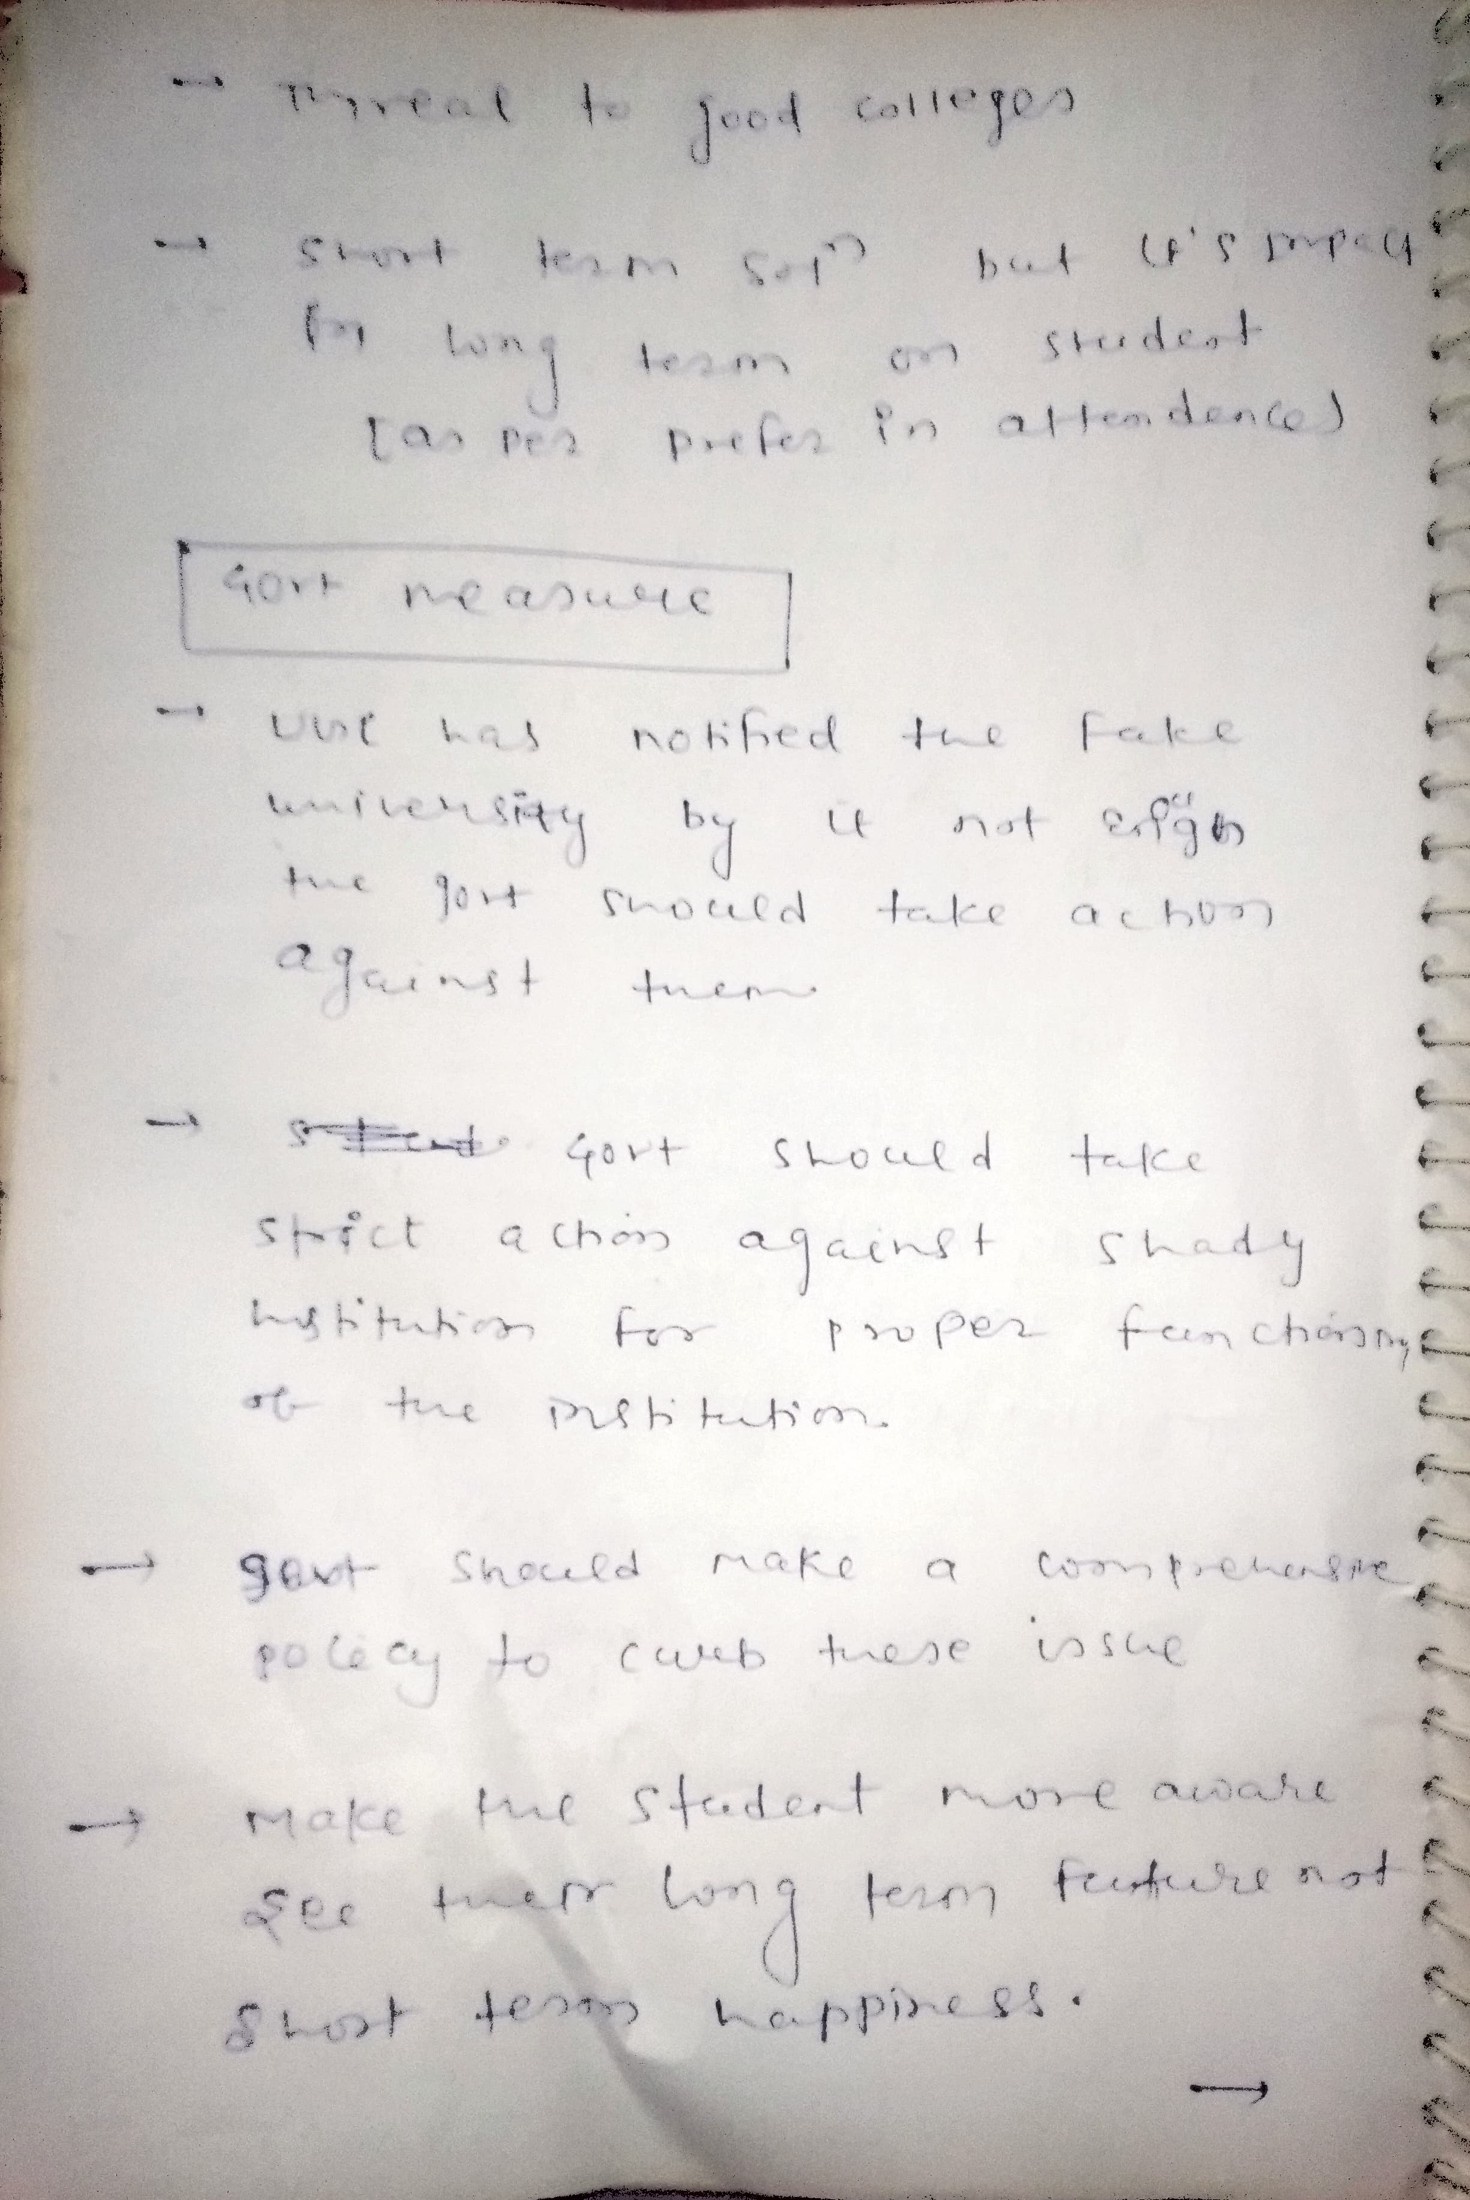 → Threat to good colleges
→ Short term sol^n but it's impact
for long term on student
(as per prefer in attendence)
Govt measure
→ UGC has notified the fake
university by it not
the govt should take action
against them.
→ Govt should take
strict action against shady
institution for proper functioning
of the institution.
→ govt should make a comprehensive
policy to curb these issue
→ Make the student more aware
see their long term future not
short term happiness.
→